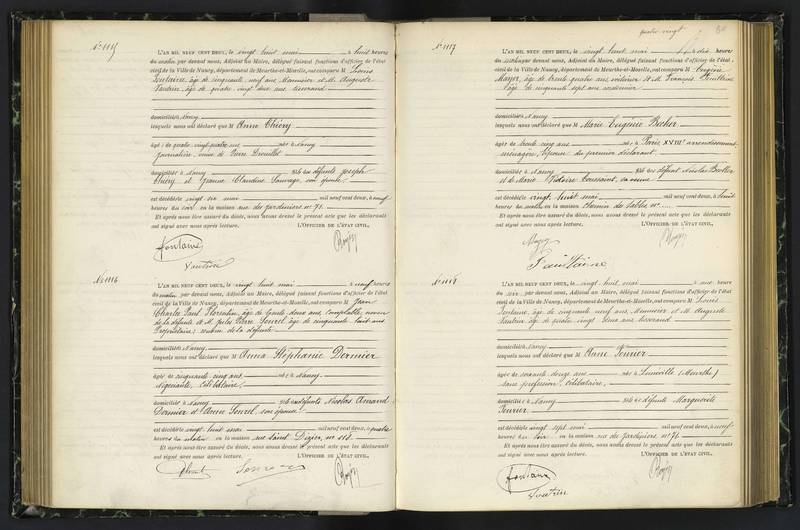 N° 1115
L'AN MIL NEUF CENT DEUX, le vingt huit mai à huit heures
du matin, par devant nous, Adjoint au Maire, délégué faisant fonctions d'officier de l'état
civil de la Ville de Nancy, département de Meurthe-et-Moselle, ont comparu M Louis
Fontaine, âgé de cinquante neuf ans, Menuisier et M. Auguste
Vautrin, âgé de quatre vingt deux ans, tisserand
domiciliés à Nancy
lesquels nous ont déclaré que M Anne Thiéry
âgée de quatre vingt quatre ans née à Nancy
journalière, veuve de Pierre Drouillot
domiciliée à Nancy fille des défunts Joseph
Thiéry et Jeanne Claudine Sauvage, son épouse
est décédée le vingt six mai mil neuf cent deux, à neuf
heures du soir en la maison rue des Jardiniers n° 71.
Et après nous être assuré du décès, nous avons dressé le présent acte que les déclarants
ont signé avec nous après lecture. L'OFFICIER DE L'ÉTAT CIVIL,
Fontaine
Vautrin
N° 1116
L'AN MIL NEUF CENT DEUX, le vingt huit mai à neuf heures
du matin, par devant nous, Adjoint au Maire, délégué faisant fonctions d'officier de l'état
civil de la Ville de Nancy, département de Meurthe-et-Moselle, ont comparu M Jean
Charles Paul Florentin, âgé de trente deux ans, comptable, neveu
de la défunte et M. Jules Pierre âgé de cinquante huit ans
Propriétaire, cousin de la défunte
domiciliés à Nancy
lesquels nous ont déclaré que M Anna Stéphanie Dormier
âgée de cinquante cinq ans née à Nancy
négociante, célibataire
domiciliée à Nancy fille des défunts Nicolas Amand
Dormier et Anne son épouse
est décédée le vingt huit mai mil neuf cent deux, à quatre
heures du matin en la maison rue Saint Dizier, n° 113.
Et après nous être assuré du décès, nous avons dressé le présent acte que les déclarants
ont signé avec nous après lecture. L'OFFICIER DE L'ÉTAT CIVIL,
quatre vingt
N° 1117
L'AN MIL NEUF CENT DEUX, le vingt huit mai à dix heures
du matin par devant nous, Adjoint au Maire, délégué faisant fonctions d'officier de l'état
civil de la Ville de Nancy, département de Meurthe-et-Moselle, ont comparu M Eugène
Mayer, âgé de trente quatre ans, voiturier et M. François
âgé de cinquante sept ans cordonnier
domiciliés à Nancy
lesquels nous ont déclaré que M Marie Eugénie Becker
âgée de trente cinq ans née à Paris, XVIII° arrondissement
ménagère, épouse du premier déclarant
domiciliée à Nancy fille des défunt Nicolas Becker
et de Marie Victoire Toussaint, sa veuve
est décédée le vingt huit mai mil neuf cent deux, à huit
heures du matin en la maison Chemin de Sables, n° ...
Et après nous être assuré du décès, nous avons dressé le présent acte que les déclarants
ont signé avec nous après lecture. L'OFFICIER DE L'ÉTAT CIVIL,
Mayer
N° 1118
L'AN MIL NEUF CENT DEUX, le vingt huit mai à une heure
du soir, par devant nous, Adjoint au Maire, délégué faisant fonctions d'officier de l'état
civil de la Ville de Nancy, département de Meurthe-et-Moselle, ont comparu M Louis
Fontaine, âgé de cinquante neuf ans, Menuisier et M. Auguste
Vautrin âgé de quatre vingt deux ans tisserand
domiciliés à Nancy
lesquels nous ont déclaré que M Anne Poirier
âgée de soixante douze ans née à Lunéville (Meurthe)
sans profession, célibataire
domiciliée à Nancy fille de défunte Marguerite
Poirier
est décédée le vingt sept mai mil neuf cent deux, à neuf
heures du soir en la maison rue des Jardiniers, n° 71
Et après nous être assuré du décès, nous avons dressé le présent acte que les déclarants
ont signé avec nous après lecture. L'OFFICIER DE L'ÉTAT CIVIL,
Fontaine
Vautrin